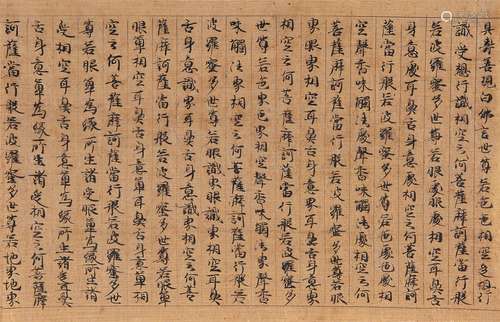 具壽善現白佛言世尊若色色相空受想行
識受想行識相空云何菩薩摩訶薩當行般
若波羅蜜多世尊若眼處眼處相空耳鼻舌
身意處耳鼻舌身意處相空云何菩薩摩訶
薩當行般若波羅蜜多世尊若色處色處相
空聲香味觸法處聲香味觸法處相空云何
菩薩摩訶薩當行般若波羅蜜多世尊若眼
界眼界相空耳鼻舌身意界耳鼻舌身意界
相空云何菩薩摩訶薩當行般若波羅蜜多
世尊若色界色界相空聲香味觸法界聲香
味觸法界相空云何菩薩摩訶薩當行般若
波羅蜜多世尊若眼識界眼識界相空耳鼻
舌身意識界耳鼻舌身意識界相空云何菩
薩摩訶薩當行般若波羅蜜多世尊若眼觸
眼觸相空耳鼻舌身意觸耳鼻舌身意觸相
空云何菩薩摩訶薩當行般若波羅蜜多世
尊若眼觸為緣所生諸受眼觸為緣所生諸
受相空耳鼻舌身意觸為緣所生諸受耳鼻
舌身意觸為緣所生諸受相空云何菩薩摩
訶薩當行般若波羅蜜多世尊若地界地界